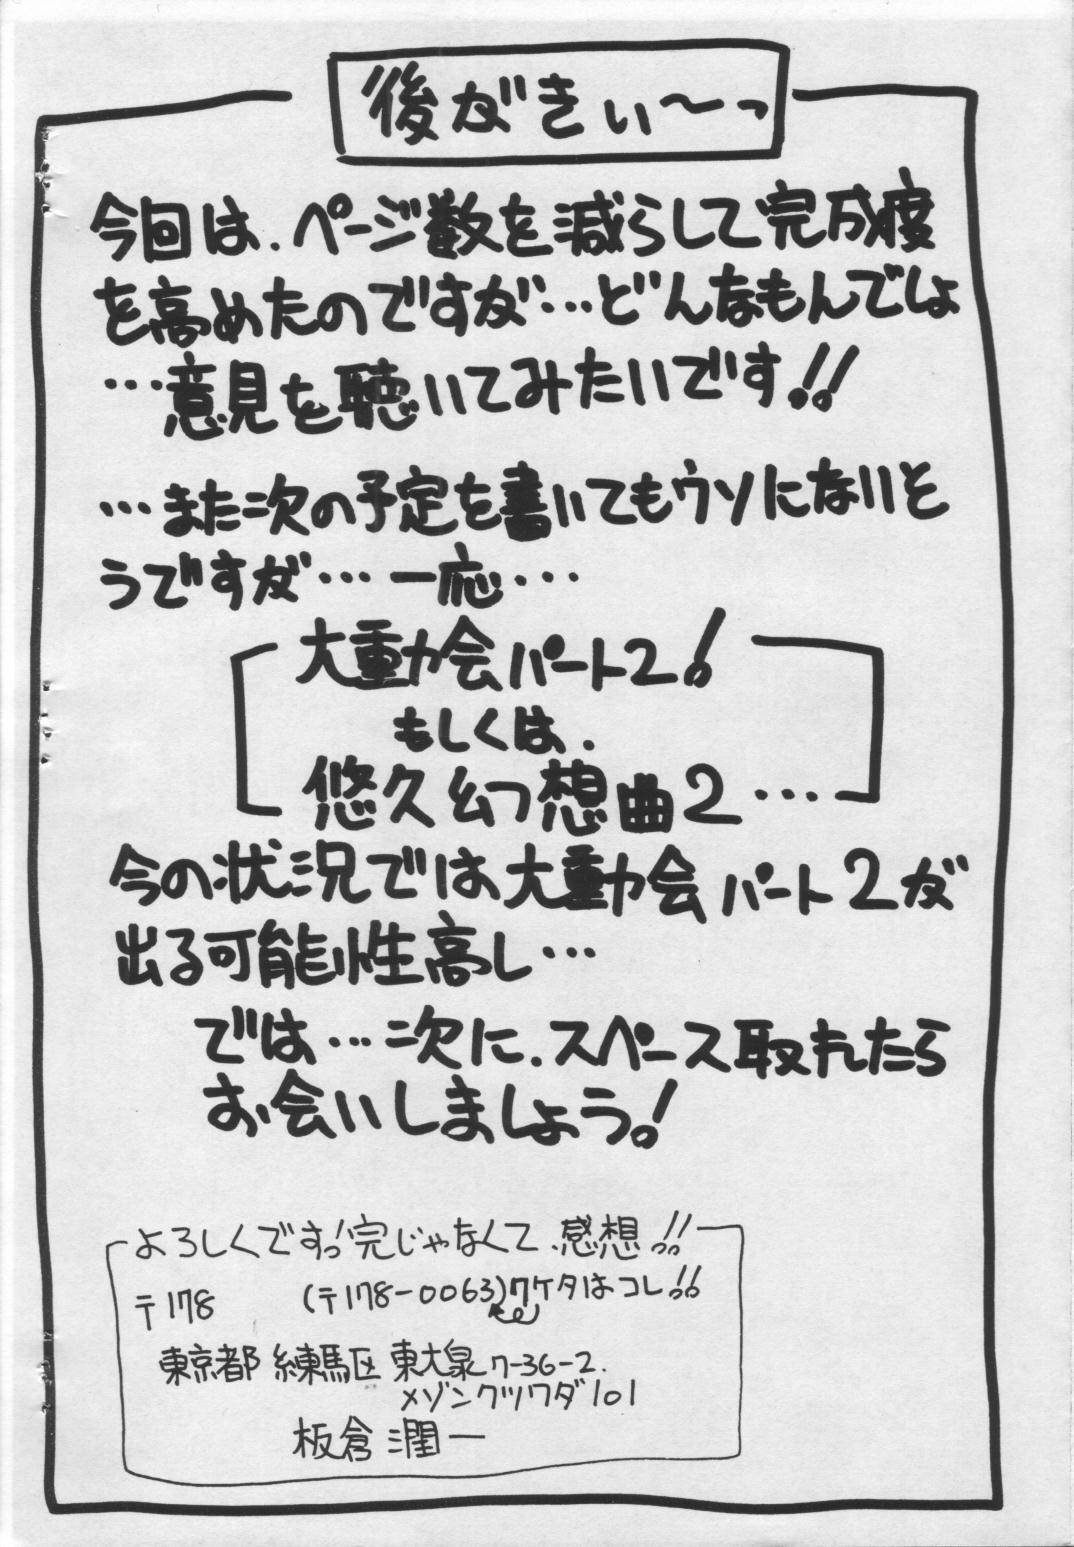 後がきぃ〜っ
今回は、ページ数を減らして完成度
を高めたのですが…どんなもんでしょ
…意見を聴いてみたいです!!
…また次の予定を書いてもウソにないそ
うですが…一応…
大運動会パート2!
もしくは、
悠久幻想曲2…
今の状況では大運動会パート2が
出る可能性高し…
では…次に、スペース取れたら
お会いしましょう!
よろしくですっ!完じゃなくて、感想!!
〒178 (〒178-0063)7ケタはコレ!!
東京都 練馬区 東大泉7-36-2.
メゾンクツワダ101
板倉 潤一